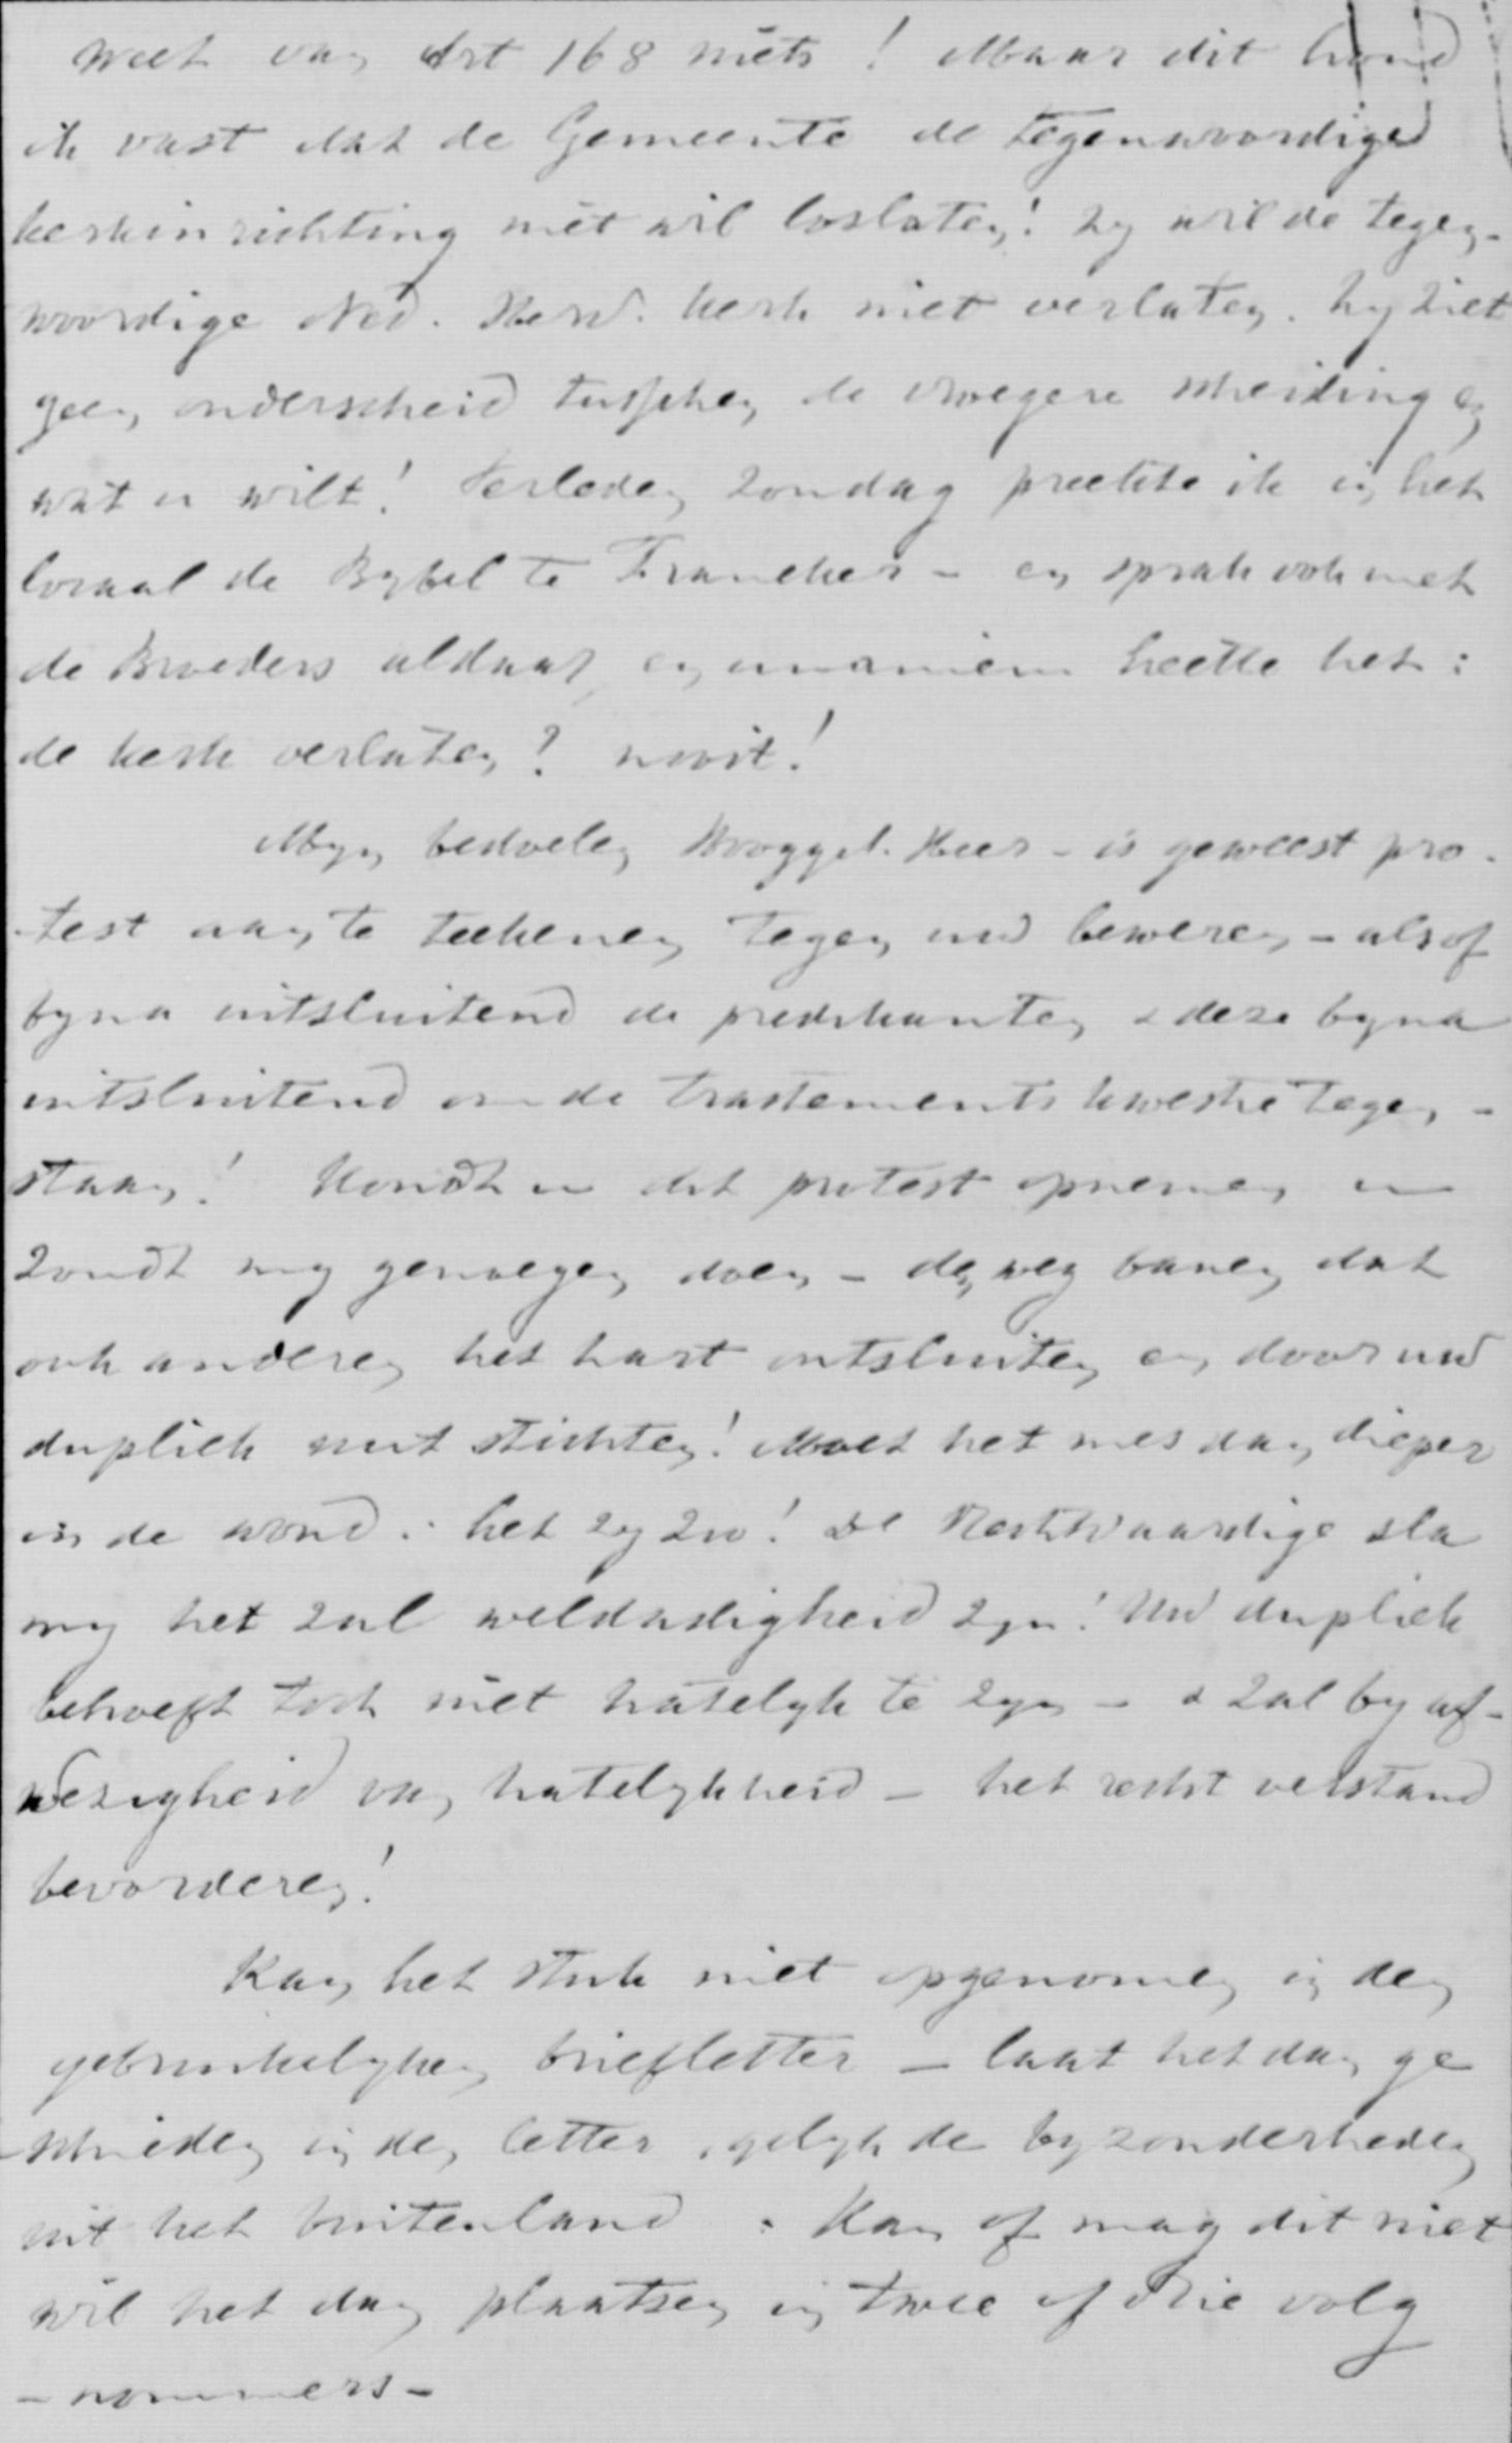 weet van Art 168 niets! Maar dit houd
ik vast dat de Gemeente de tegenwoordige
kerkinrichting niet wil loslaten! Zy wil de tegen-
woordige Ned. Herv. kerk niet verlaten. Zy ziet
geen onderscheid tusschen de vroegere scheiding en
wat u wilt! Verleden Zondag preekte ik in het
locaal de Bybel te Franeker - en sprak ook met
de Broeders aldaar en unaniem heette het:
de kerk verlaten? nooit!
Myn bedoelen Hooggel. Heer - is geweest pro-
-test aan te teekenen tegen uw beweren - alsof
byna uitsluitend de predikanten & deze byna
uitsluitend om de tractements kwestie tegen-
staan! Kondt u dit protest opnemen u
zoudt my genoegen doen - den weg banen dat
ook anderen het hart ontsluiten en door uw
dupliek nut stichten! Moet het mes dan dieper
in de wond: het zy zoo! De Rechtvaardige sla
my het zal weldadigheid zyn! Uw dupliek
behoeft toch niet hatelyk te zyn - & zal by af-
wezigheid van hatelykheid - het recht verstand
bevorderen!
Kan het stuk niet opgenomen in den
gebruikelyken briefletter - laat het dan ge
-schieden in den letter gelyk de byzonderheden
uit het buitenland. Kan of mag dit niet
wil het dan plaatsen in twee of drie volg
- nommers -